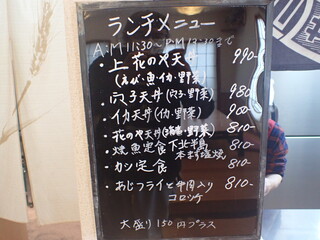 ランチメニュー
A:M 11:30~P:M 13:30まで
・上花のや天 990-
(えび・魚・イカ・野菜)
・穴子天丼(穴子・野菜) 980-
・イカ天丼(イカ・野菜) 900-
・花のや天丼(野菜) 810-
・焼魚定食 下北半島 810-
・カツ定食 810-
・あじフライと牛肉入り 810-
コロッケ
大盛り150円プラス